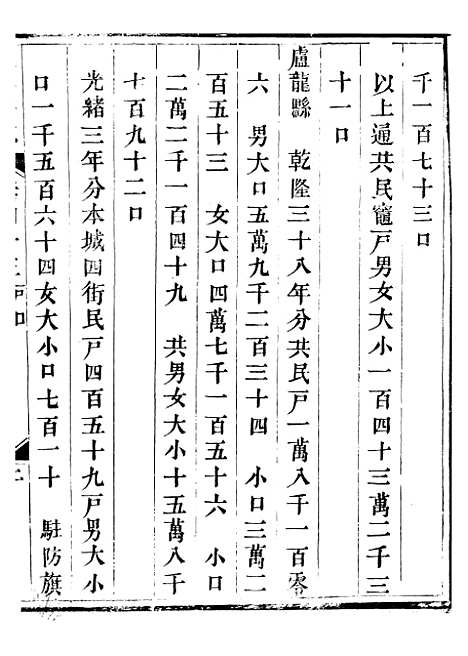 千一百七十三口
以上通共民竈戸男女大小一百四十三萬二千三
十一口
盧龍縣　乾隆三十八年分共民戸一萬八千一百零
六　男大口五萬九千二百三十四　小口三萬二
百五十三　女大口四萬七千一百五十六　小口
二萬二千一百四十九　共男女大小十五萬八千
七百九十二口
光緒三年分本城四街民戸四百五十九戸男大小
口一千五百六十四女大小口七百一十　駐防旗